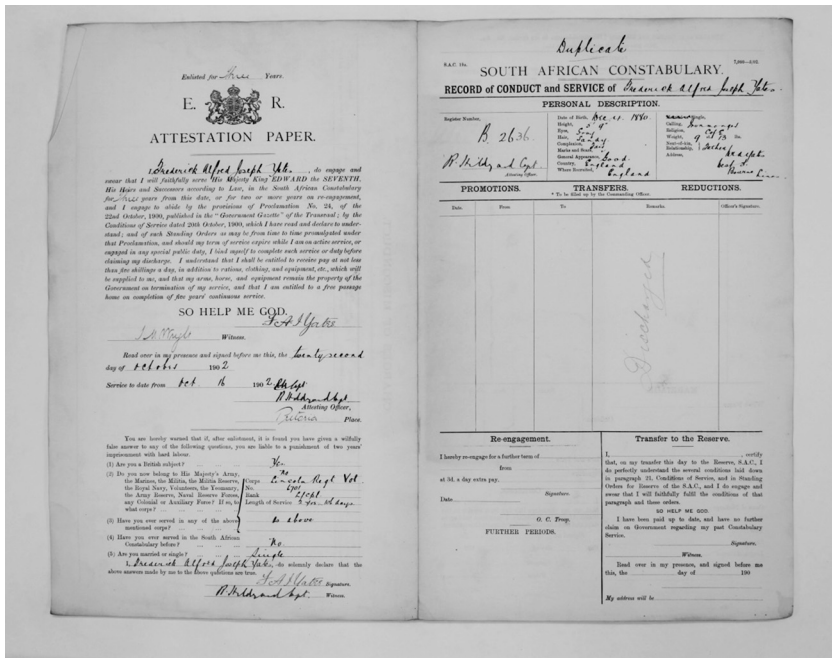 Enlisted for Three Years.
E. R.
ATTESTATION PAPER.
I, Frederick Alfred Joseph Yates, do engage and
swear that I will faithfully serve His Majesty King EDWARD the SEVENTH,
His Heirs and Successors according to Law, in the South African Constabulary
for three years from this date, or for two or more years on re-engagement,
and I engage to abide by the provisions of Proclamation No. 24, of the
22nd October, 1900, published in the "Government Gazette" of the Transvaal; by the
Conditions of Service dated 20th October, 1900, which I have read and declare to under-
stand; and of such Standing Orders as may be from time to time promulgated under
that Proclamation, and should my term of service expire while I am on active service, or
engaged in any special public duty, I bind myself to complete such service or duty before
claiming my discharge. I understand that I shall be entitled to receive pay at not less
than five shillings a day, in addition to rations, clothing, and equipment, etc., which will
be supplied to me, and that my arms, horse, and equipment remain the property of the
Government on termination of my service, and that I am entitled to a free passage
home on completion of five years' continuous service.
SO HELP ME GOD.
F A J Yates
Witness.
Read over in my presence and signed before me this, the twenty second
day of October 1902
Service to date from Oct 16 1902
Capt
Attesting Officer,
Pretoria Place.
You are hereby warned that if, after enlistment, it is found you have given a wilfully
false answer to any of the following questions, you are liable to a punishment of two years'
imprisonment with hard labour.
(1) Are you a British subject? Yes
(2) Do you now belong to His Majesty's Army, No
the Marines, the Militia, the Militia Reserve, Corps Lincoln Regt Vol
the Royal Navy, Volunteers, the Yeomanry, No.
the Army Reserve, Naval Reserve Forces, Rank L/Cpl
any Colonial or Auxiliary Force? If so, to Length of Service
what corps?
(3) Have you ever served in any of the above
mentioned corps? as above
(4) Have you ever served in the South African
Constabulary before? No
(5) Are you married or single? Single
I, Frederick Alfred Joseph Yates, do solemnly declare that the
above answers made by me to the above questions are true.
F A J Yates Signature.
Capt. Witness.
Duplicate
S.A.C. 18a.
SOUTH AFRICAN CONSTABULARY.
RECORD of CONDUCT and SERVICE of Frederick Alfred Joseph Yates
PERSONAL DESCRIPTION.
Register Number,
B. 2636
Capt.
Attesting Officer.
Date of Birth, Dec 1880
Height, 5' 9"
Eyes, Grey
Hair,
Complexion, Fair
Marks and Scars,
General Appearance, Good
Country, England
Where Recruited, England
Single.
Calling, Ironmonger
Religion, C of E
Weight, 9 st 13 lbs.
Next-of-kin,
Relationship, Father
Address,
PROMOTIONS. TRANSFERS. REDUCTIONS.
* To be filled up by the Commanding Officer.
Date. From To Remarks. Officer's Signature.
Discharged
Re-engagement.
I hereby re-engage for a further term of
from
at 3d. a day extra pay.
Signature.
Date
O. C. Troop.
FURTHER PERIODS.
Transfer to the Reserve.
I, certify
that, on my transfer this day to the Reserve, S.A.C., I
do perfectly understand the several conditions laid down
in paragraph 21, Conditions of Service, and in Standing
Orders for Reserve of the S.A.C., and I do engage and
swear that I will faithfully fulfil the conditions of that
paragraph and these orders.
SO HELP ME GOD.
I have been paid up to date, and have no further
claim on Government regarding my past Constabulary
Service.
Signature.
Witness.
Read over in my presence, and signed before me
this, the day of 190
My address will be